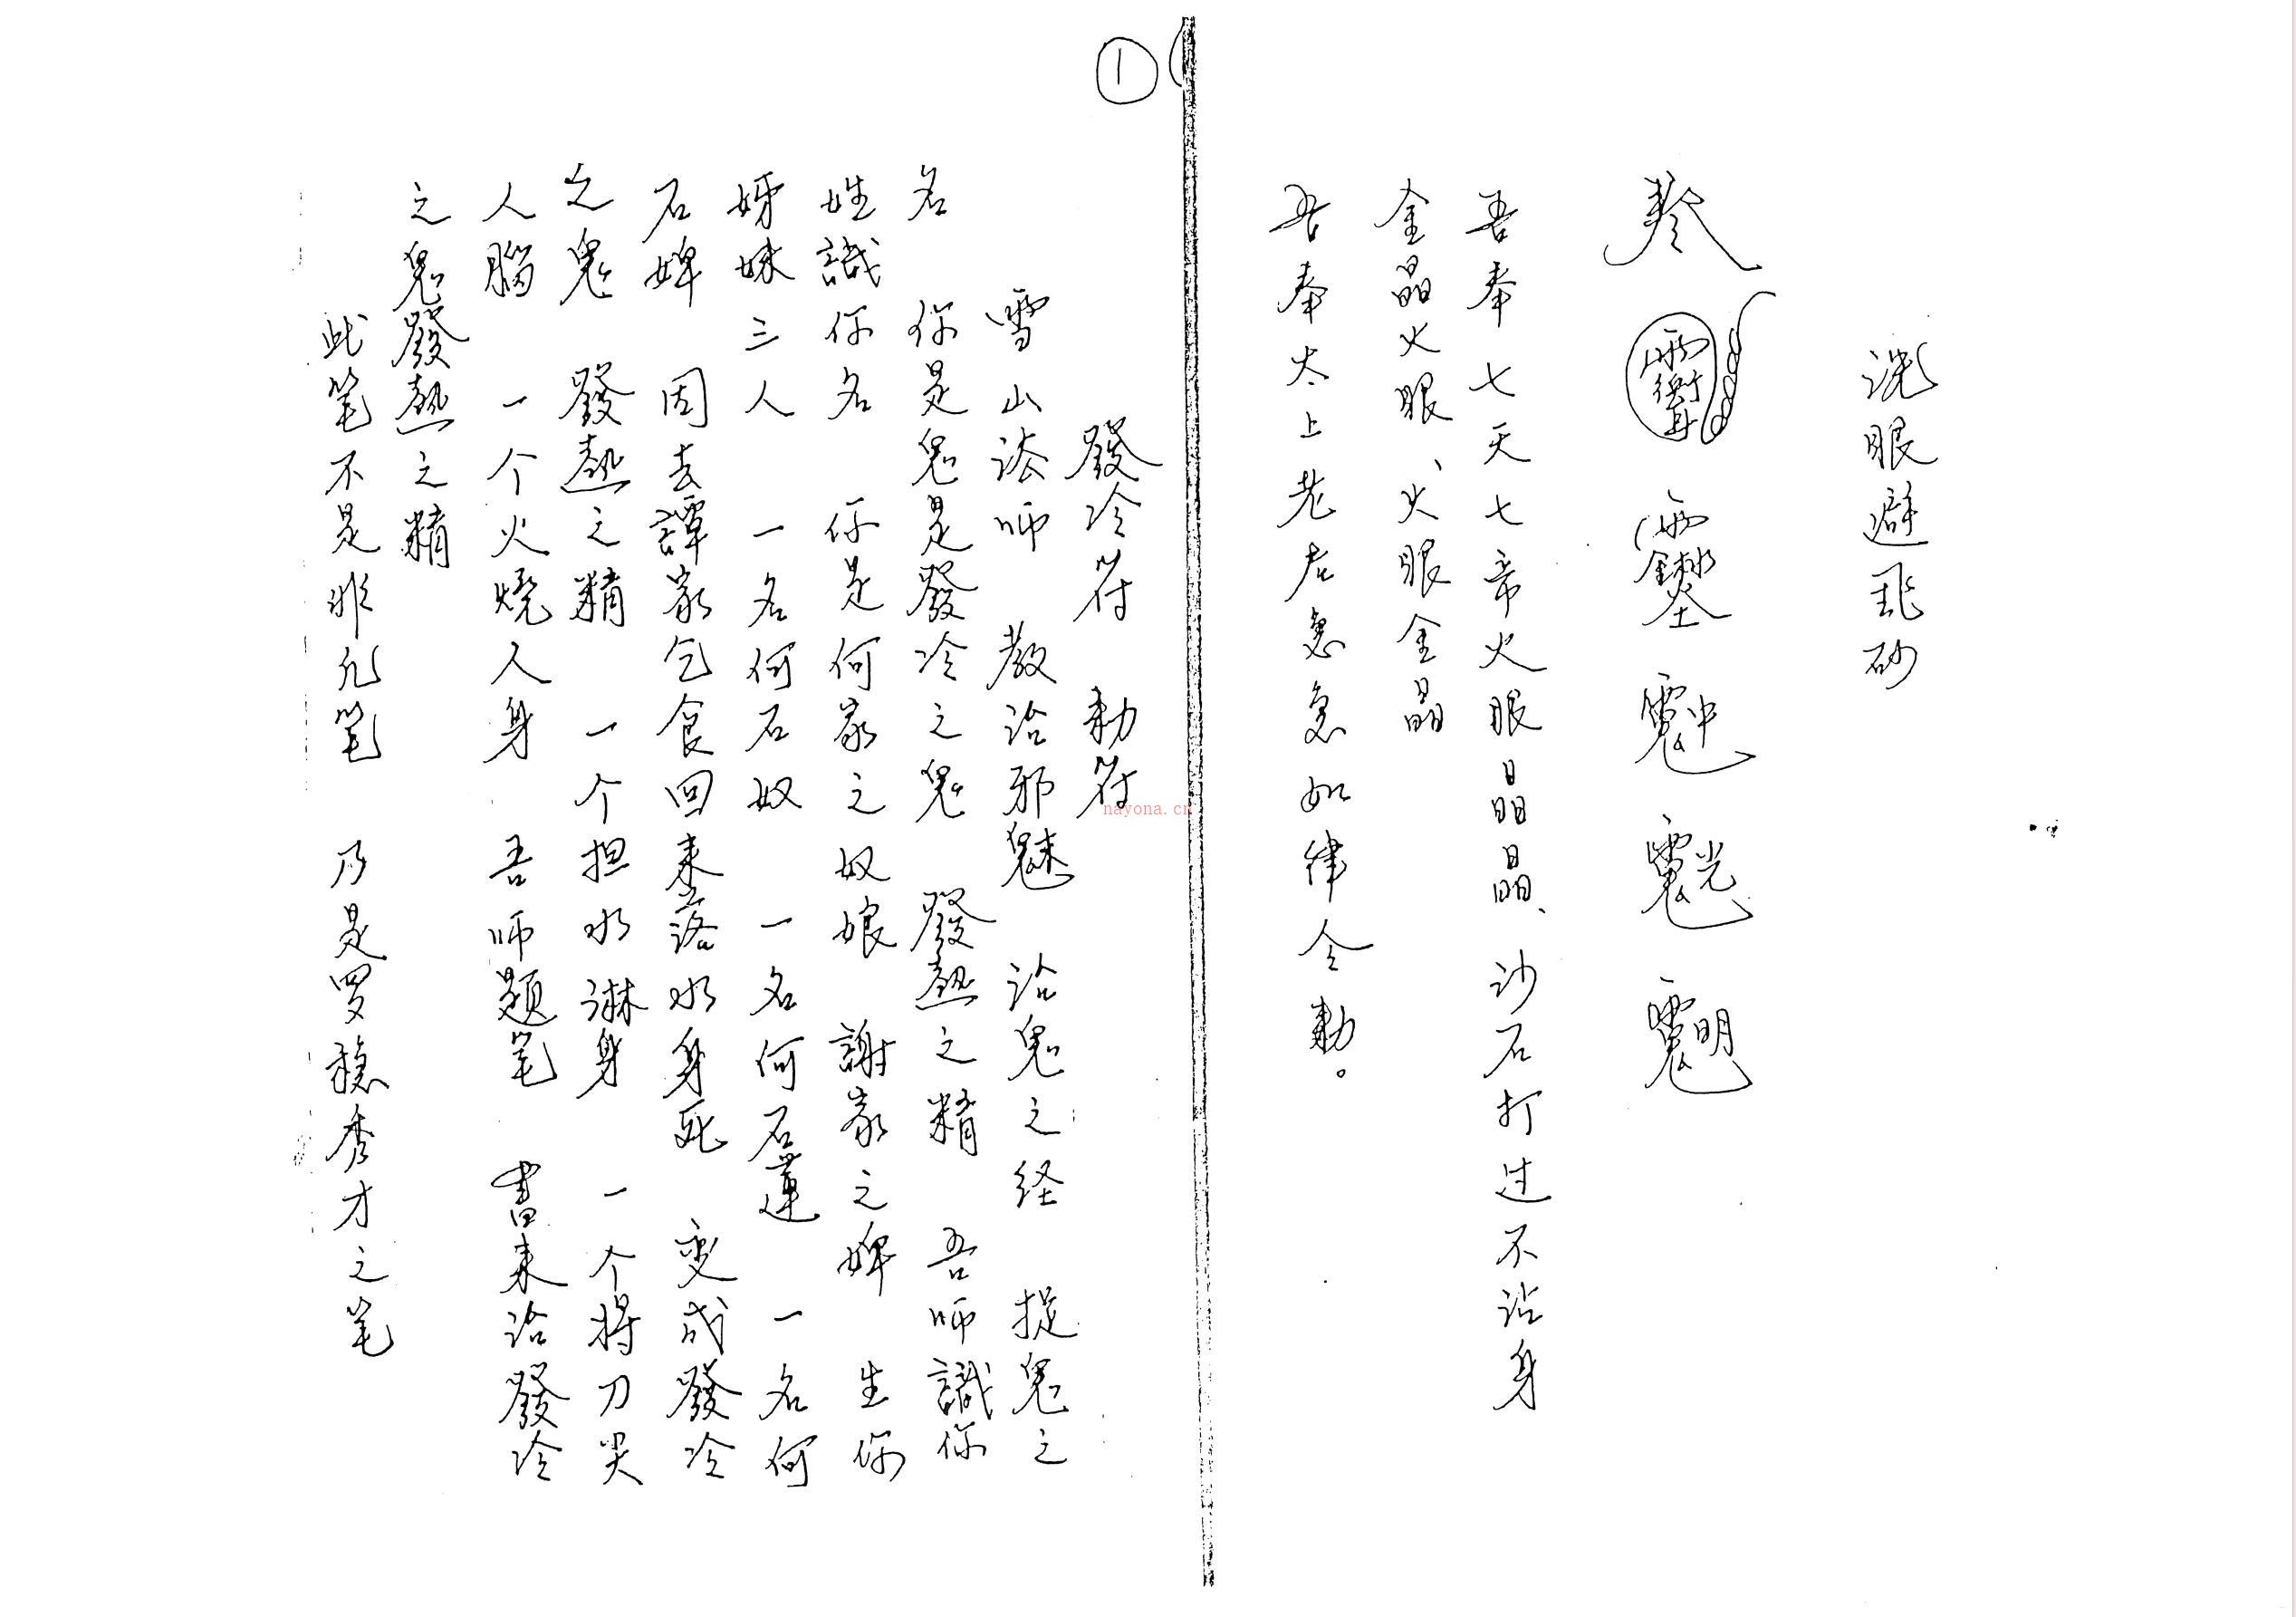 洗眼避飛砂
吾奉七天七帝火眼日晶晶日晶、沙石打过不沾身
金晶火眼、火眼金晶
吾奉太上老君急急如律令勅。
①
發冷符 勅符
雪山法师 教治邪魅 治鬼之经 捉鬼之
名 你是鬼是發冷之鬼 發熱之精 吾师識你
姓識你名 你是何家之奴娘 謝家之婢 生你
姊妹三人 一名何石奴 一名何石蓮 一名何
石婢 因去譚家乞食回来落水身死 变成發冷
之鬼 發熱之精 一个担水淋身 一个将刀尖
人腦 一个火燒人身 吾师題笔 書来治發冷
之鬼發熱之精
此笔不是非凡笔 乃是罗穩秀才之笔
nayona.cn